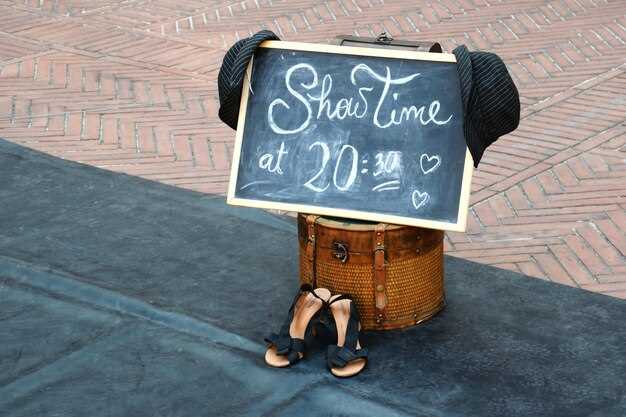 Show Time
at 20:30